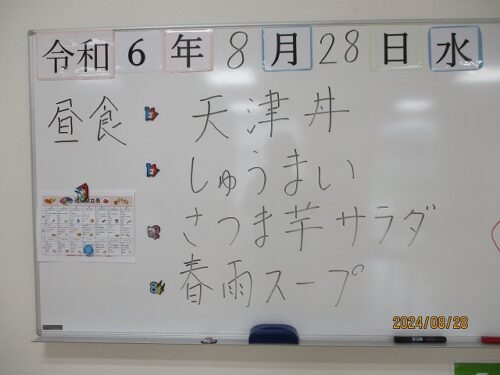 令和6年8月28日水
昼食 天津丼
しゅうまい
さつま芋サラダ
春雨スープ
2024/08/28